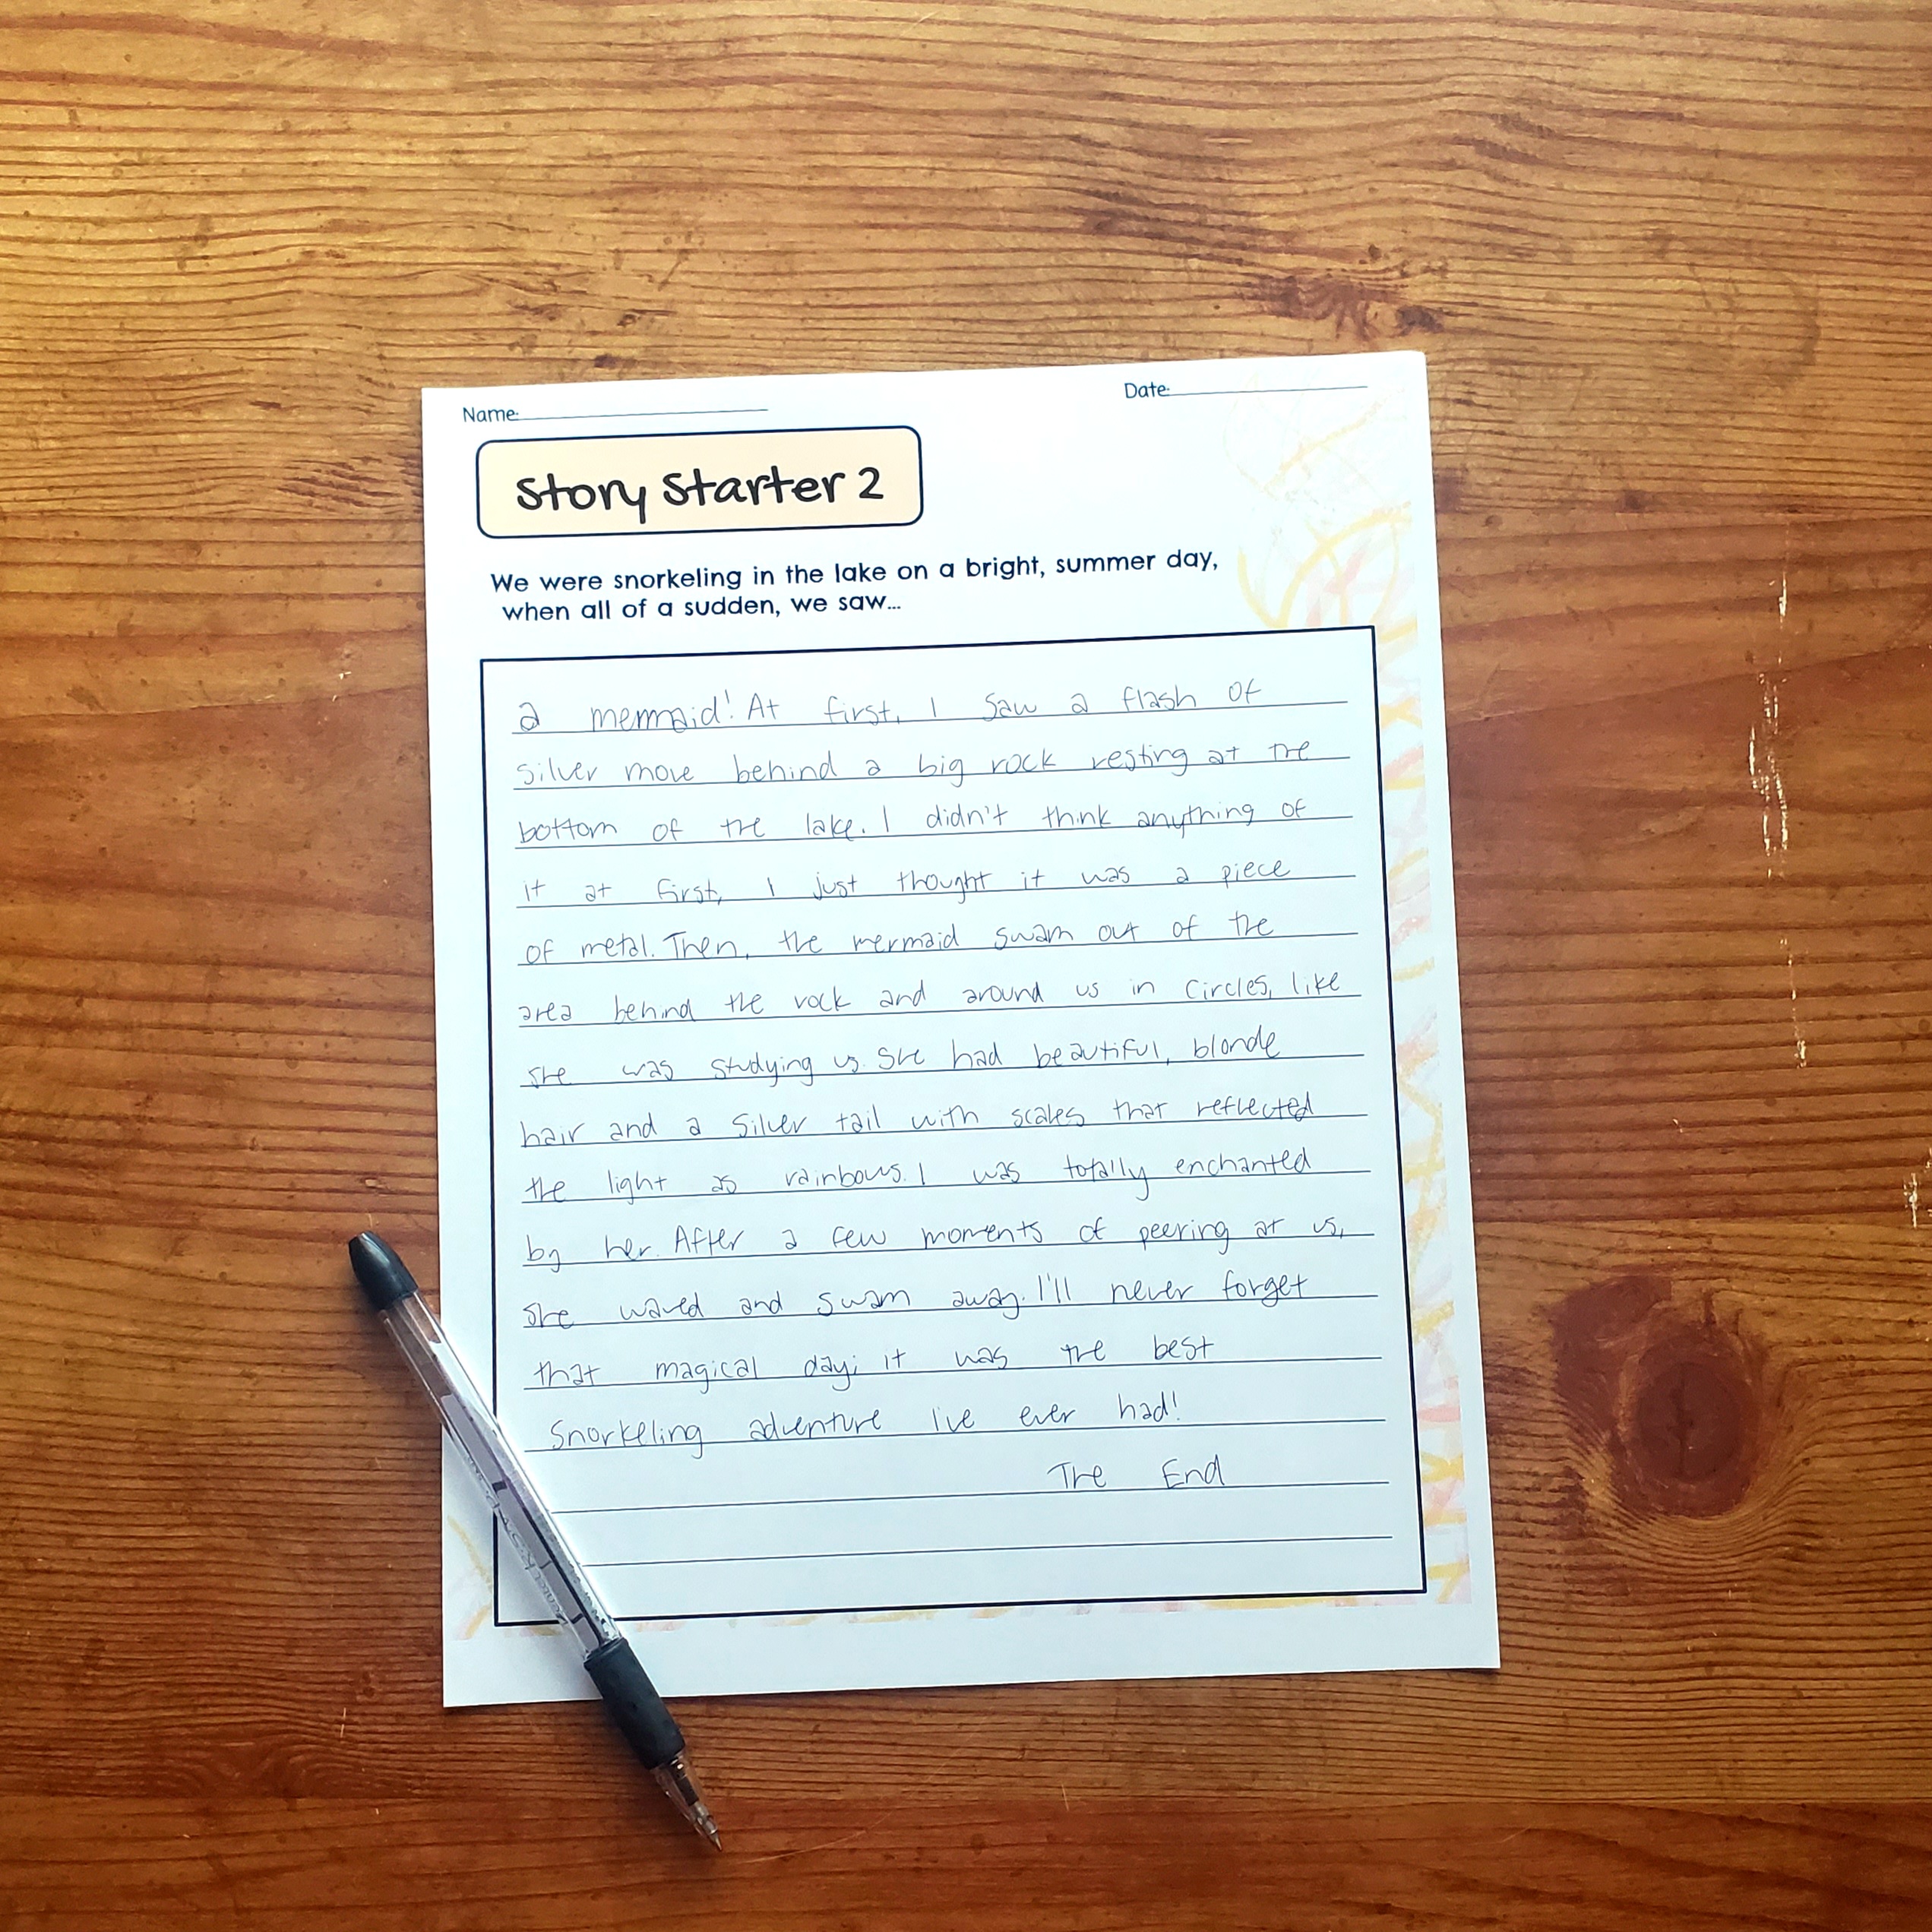 Name:
Date:
Story Starter 2
We were snorkeling in the lake on a bright, summer day,
when all of a sudden, we saw...
a mermaid! At first, I saw a flash of
silver move behind a big rock resting at the
bottom of the lake. I didn't think anything of
it at first, I just thought it was a piece
of metal. Then, the mermaid swam out of the
area behind the rock and around us in circles, like
she was studying us. She had beautiful, blonde
hair and a silver tail with scales that reflected
the light as rainbows. I was totally enchanted
by her. After a few moments of peering at us,
she waved and swam away. I'll never forget
that magical day; it was the best
snorkeling adventure I've ever had!
The End